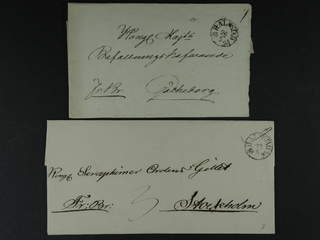 Kongl. Majts
Befallningshafwande
Götheborg
Kongl. Seraphimer Ordens Gillet
Fr: Br:
Stockholm